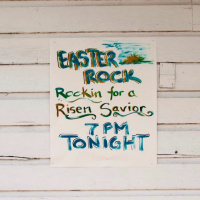 EASTER
ROCK
Rockin for a
Risen Savior
7 PM
TONIGHT